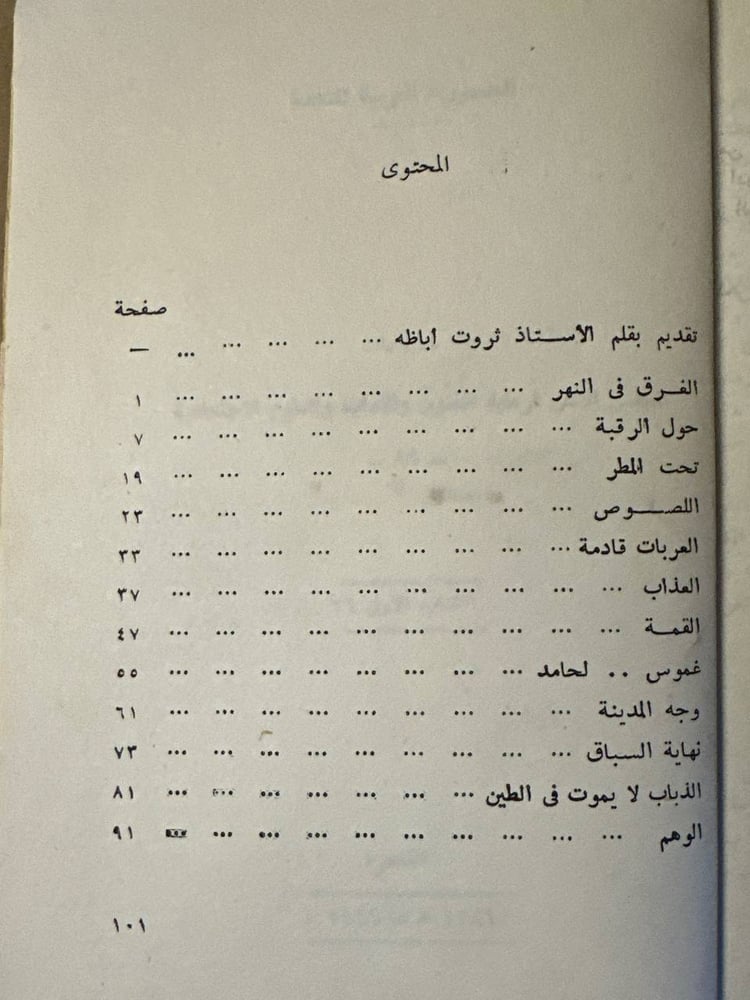 المحتوى
صفحة
تقديم بقلم الأستاذ ثروت أباظه ... ... ... ... ... —
الغرق فى النهر ... ... ... ... ... ... ... ... ١
حول الرقبة ... ... ... ... ... ... ... ... ... ٧
تحت المطر ... ... ... ... ... ... ... ... ... ١٩
اللصوص ... ... ... ... ... ... ... ... ... ٢٣
العربات قادمة ... ... ... ... ... ... ... ... ... ٣٣
العذاب ... ... ... ... ... ... ... ... ... ... ٣٧
القمة ... ... ... ... ... ... ... ... ... ... ٤٧
غموس .. لحامد ... ... ... ... ... ... ... ... ٥٥
وجه المدينة ... ... ... ... ... ... ... ... ... ٦١
نهاية السباق ... ... ... ... ... ... ... ... ... ٧٣
الذباب لا يموت فى الطين ... ... ... ... ... ... ... ٨١
الوهم ... ... ... ... ... ... ... ... ... ... ٩١
١٠١